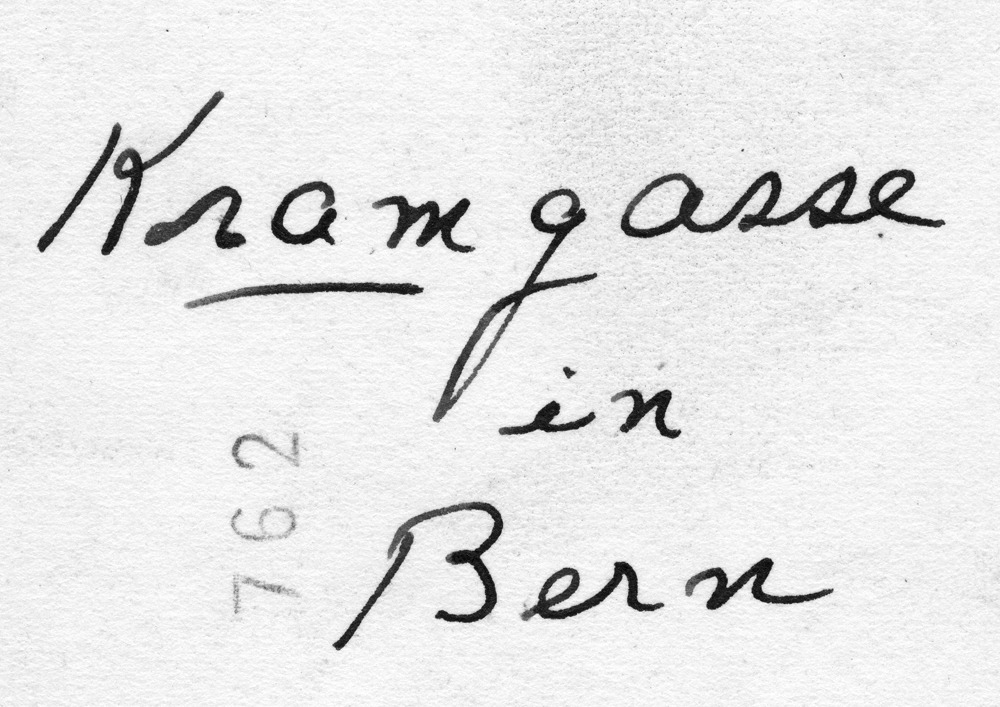 Kramgasse
in
Bern
762